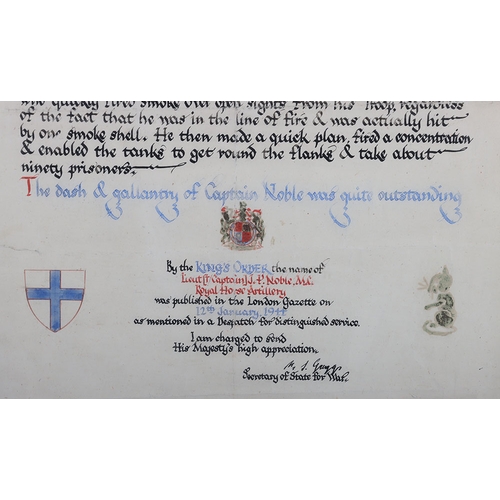 who quickly fired smoke over open sights from his Troop, regardless
of the fact that he was in the line of fire & was actually hit
by one smoke shell. He then made a quick plan, fired a concentration
& enabled the tanks to get round the flanks & take about
ninety prisoners.
The dash & gallantry of Captain Noble was quite outstanding
By the KING'S ORDER the name of
Lieut (T. Captain) J. P. Noble, M.C.
Royal Horse Artillery
was published in the London Gazette on
12th January, 1944
as mentioned in a Despatch for distinguished service.
I am charged to send
His Majesty's high appreciation.
Secretary of State for War.